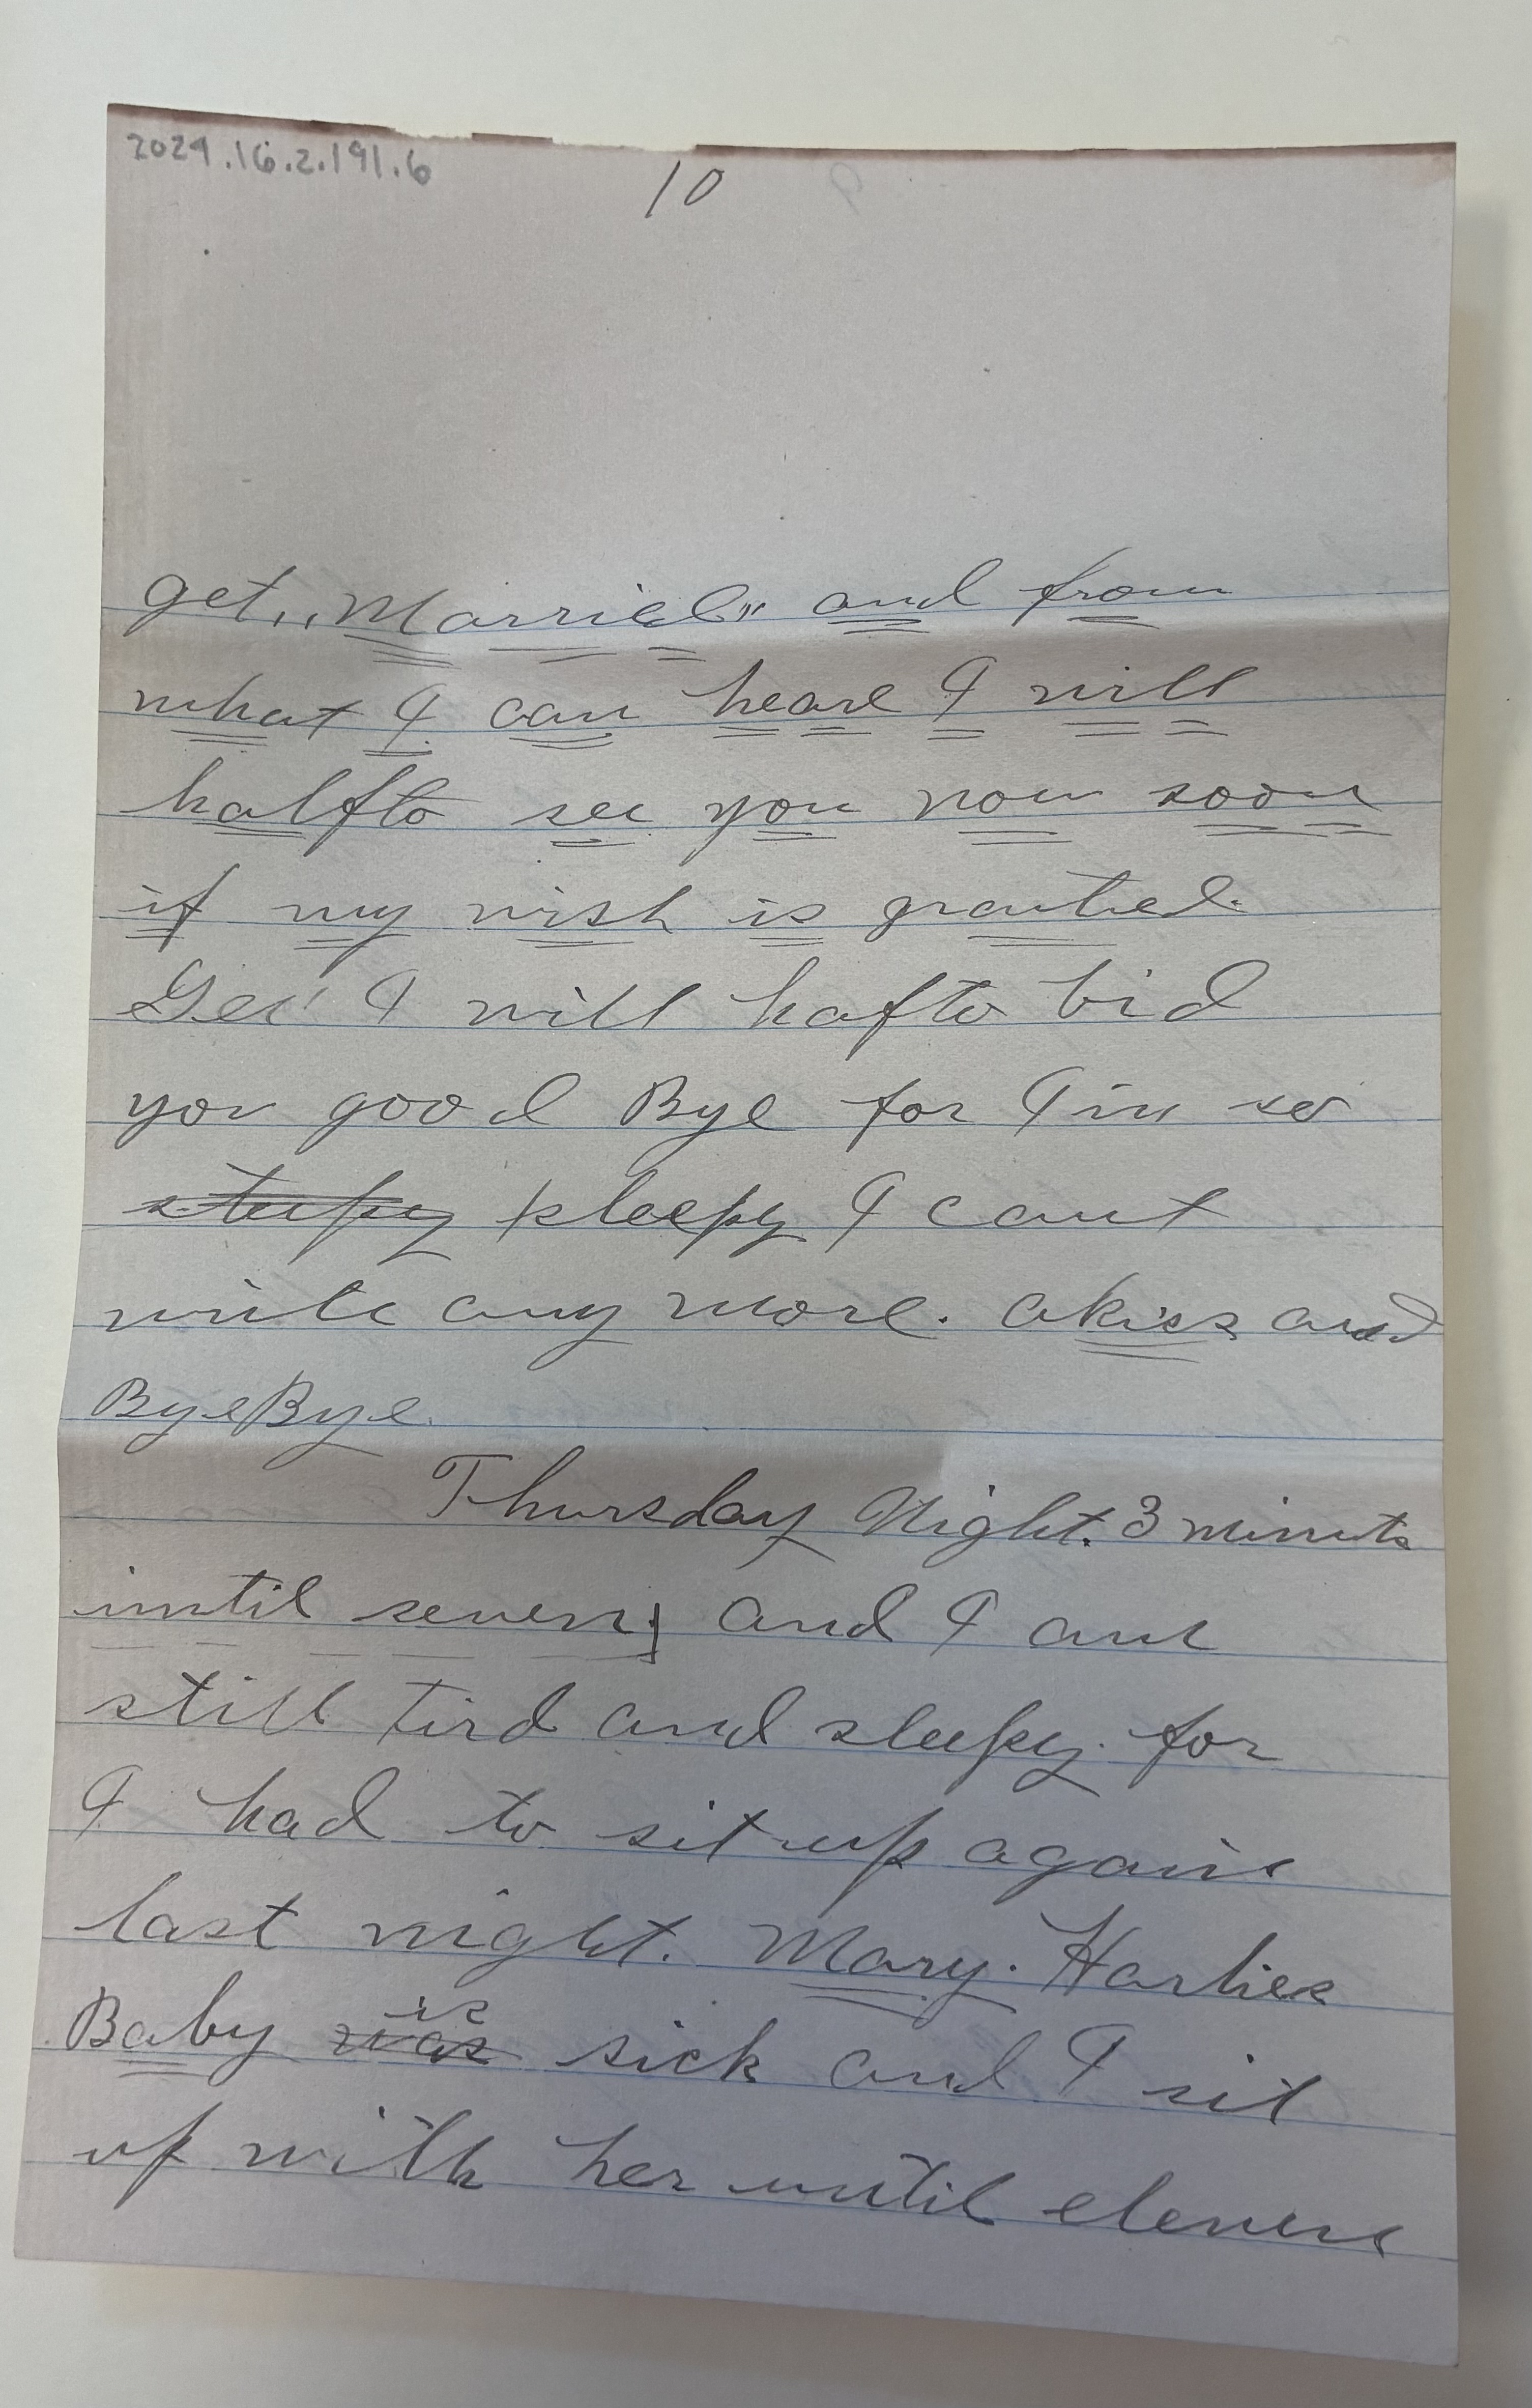 2024.16.2.191.6
10
get,, "Married" and from
what I can heare I will
halfto see you now soon
if my wish is granted.
Gee! I will hafto bid
you good Bye for I'm so
sleepy sleepy I cant
write any more. a kiss and
Bye Bye.
Thursday Night. 3 minuts
until seven; and I am
still tird and sleepy. for
I had to sit up again
last night. Mary. Harlies
Baby was is sick and I sit
up with her until eleven